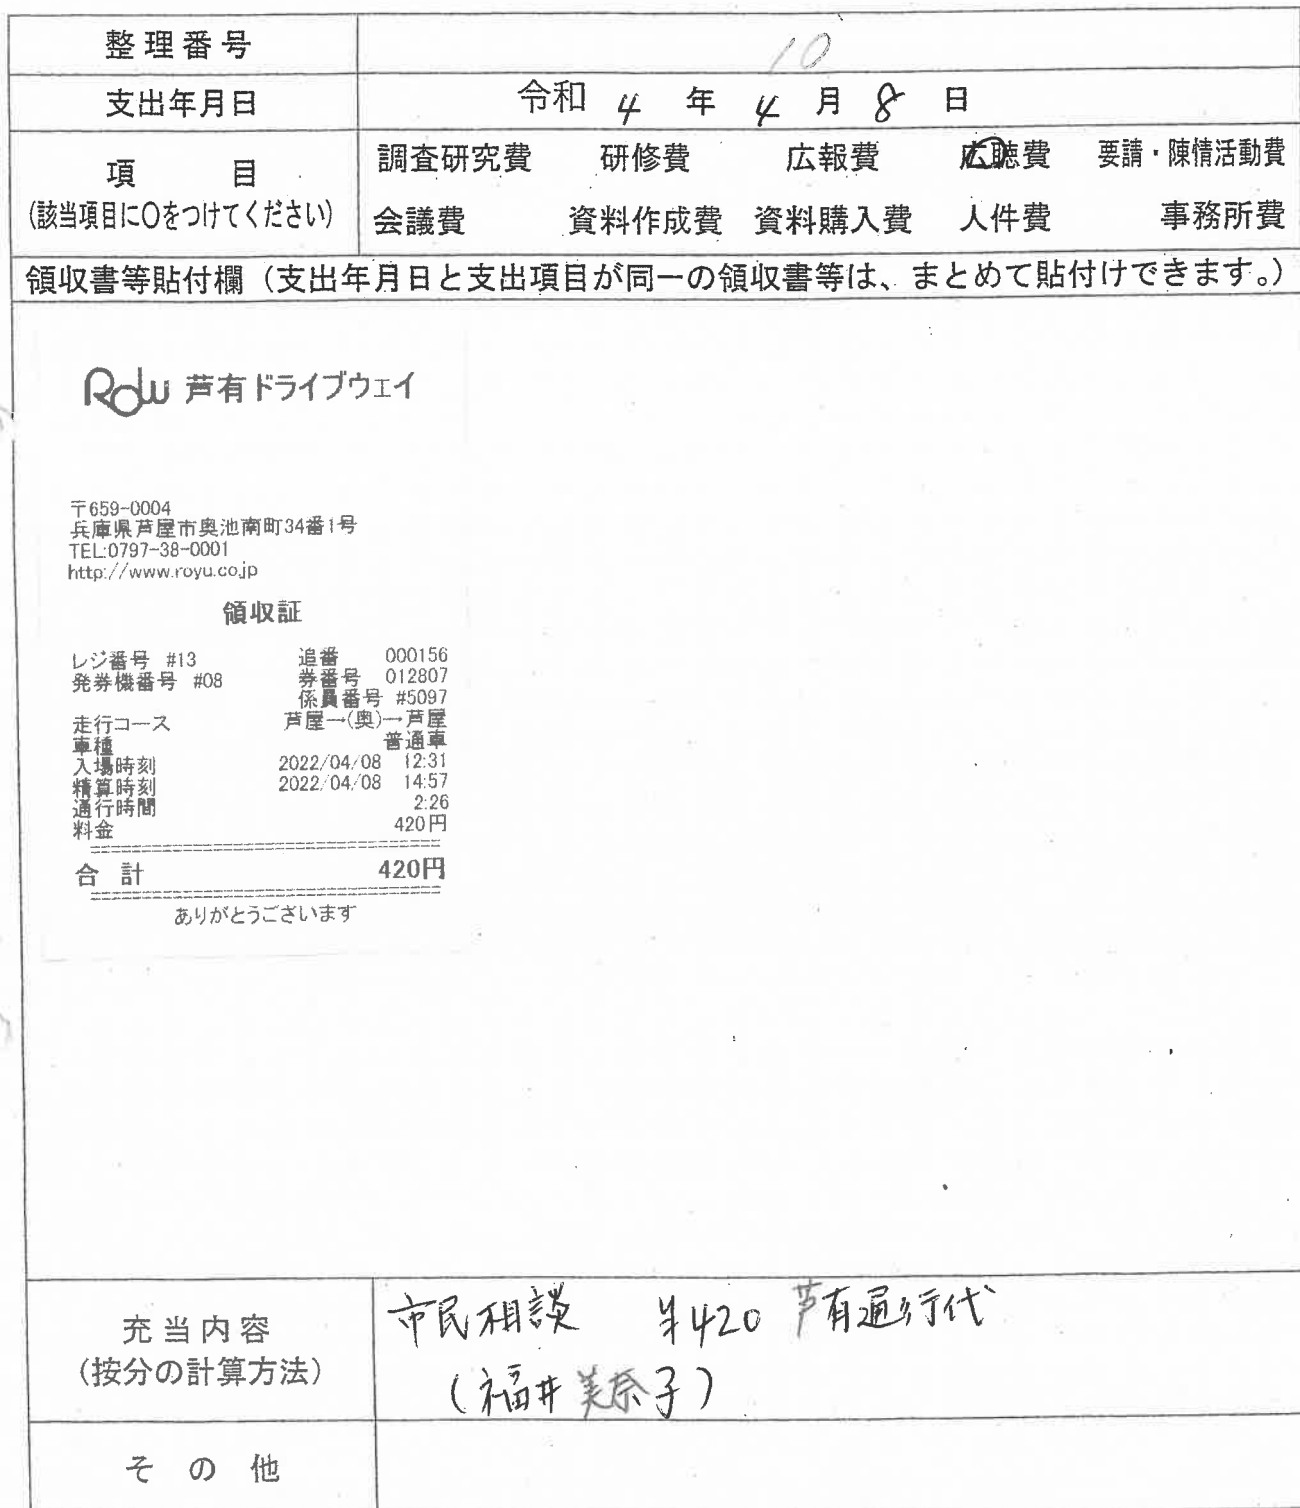 整理番号 10
支出年月日 令和 4 年 4 月 8 日
項目 調査研究費 研修費 広報費 広聴費 要請・陳情活動費
(該当項目に〇をつけてください) 会議費 資料作成費 資料購入費 人件費 事務所費
領収書等貼付欄(支出年月日と支出項目が同一の領収書等は、まとめて貼付けできます。)
芦有ドライブウェイ
〒659-0004
兵庫県芦屋市奥池南町34番1号
TEL:0797-38-0001
http://www.royu.co.jp
領収証
レジ番号 #13 追番 000156
発券機番号 #08 券番号 012807
係員番号 #5097
走行コース 芦屋→(奥)→芦屋
車種 普通車
入場時刻 2022/04/08 12:31
精算時刻 2022/04/08 14:57
通行時間 2:26
料金 420円
合計 420円
ありがとうございます
充当内容 市民相談 ¥420 芦有通行代
(按分の計算方法) (福井美奈子)
その他